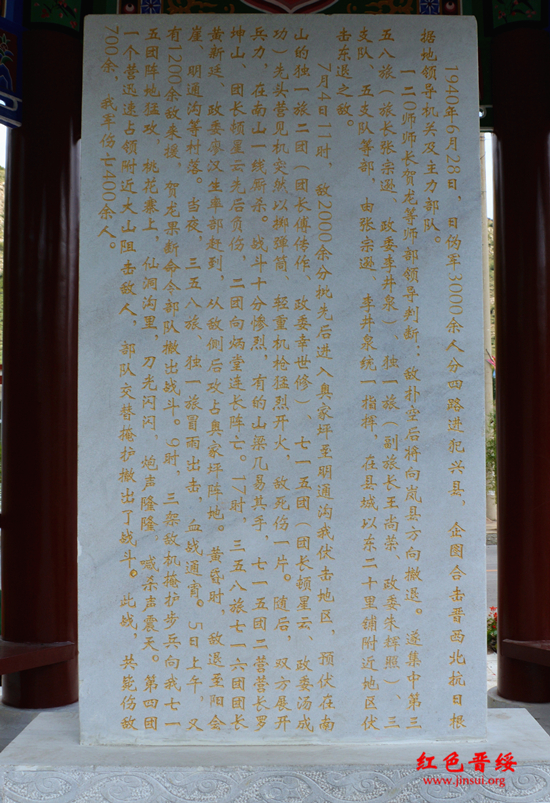 1940年6月28日，日伪军3000余人分四路进犯兴县，企图合击晋西北抗日根
据地领导机关及主力部队。
一二0师师长贺龙等师部领导判断：敌扑空后将向岚县方向撤退。遂集中第三
五八旅（旅长张宗逊、政委李井泉）独一旅（副旅长王尚荣、政委朱辉照）、三
支队、五支队等部，由张宗逊、李井泉统一指挥，在县城以东二十里铺附近地区伏
击东退之敌。
7月4日11时，敌2000余分批先后进入奥家坪至明通沟我伏击地区，预伏在南
山的独一旅二团（团长傅传作、政委幸世修）七一五团（团长顿星云、政委汤成
功）先头营见机突然以掷弹筒、轻重机枪猛烈开火，敌死伤一片。随后，双方展开
兵力，在南山一线厮杀。战斗十分惨烈，有的山梁几易其手，七一五团二营营长罗
坤山、团长顿星云先后负伤，二团向炳堂连长阵亡。17时，三五八旅七一六团团长
黄新廷、政委廖汉生率部赶到，从敌侧后攻占奥家坪阵地。黄昏时，敌退至阳会
崖、明通沟等村落。当夜，三五八旅、独一旅冒雨出击，血战通宵。5日上午，又
有1200余敌来援，贺龙果断命令部队撤出战斗。9时，三架敌机掩护步兵向我七一
五团阵地猛攻，桃花寨上，仙洞沟里，刀光闪闪，炮声隆隆，喊杀声震天。第四团
一个营迅速占领附近大山阻击敌人，部队交替掩护撤出了战斗。此战，共毙伤敌
700余，我军伤亡400余人。
红色晋绥
www.jinsui.org